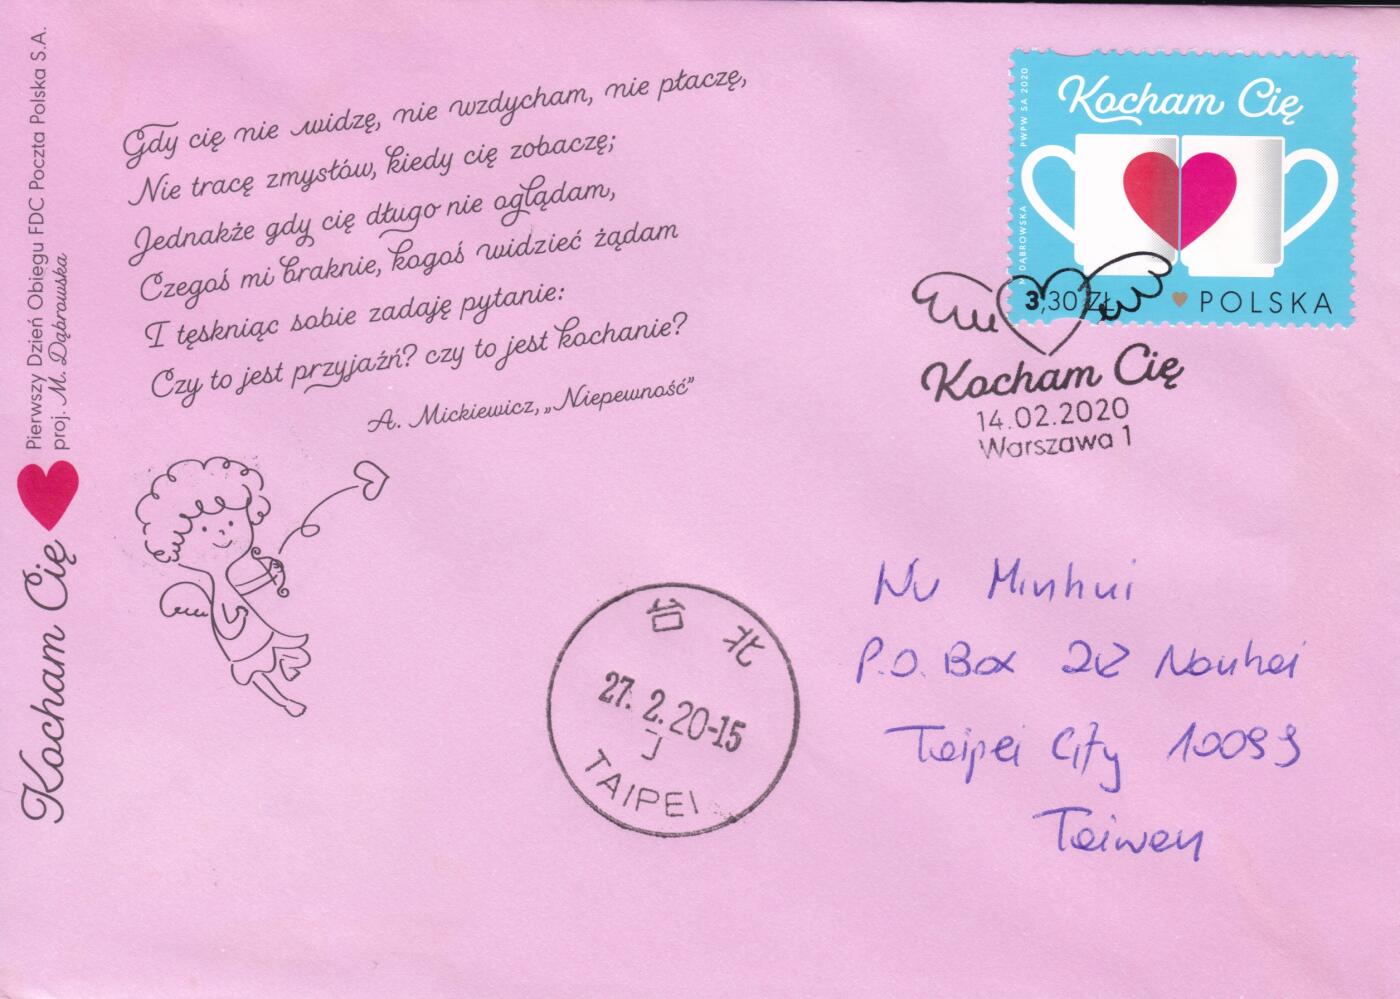 Pierwszy Dzień Obiegu FDC Poczta Polska S.A.
proj. M. Dąbrowska
Kocham Cię
Gdy cię nie widzę, nie wzdycham, nie płaczę,
Nie tracę zmysłów, kiedy cię zobaczę;
Jednakże gdy cię długo nie oglądam,
Czegoś mi braknie, kogoś widzieć żądam
I tęskniąc sobie zadaję pytanie:
Czy to jest przyjaźń? czy to jest kochanie?
A. Mickiewicz, „Niepewność”
PWPW SA 2020
M. DĄBROWSKA
Kocham Cię
3,30 ZŁ
POLSKA
Kocham Cię
14.02.2020
Warszawa 1
台北
27. 2. 20-15
J
TAIPEI
Wu Minhui
P.O. Box Nanhai
Taipei City 10099
Taiwan